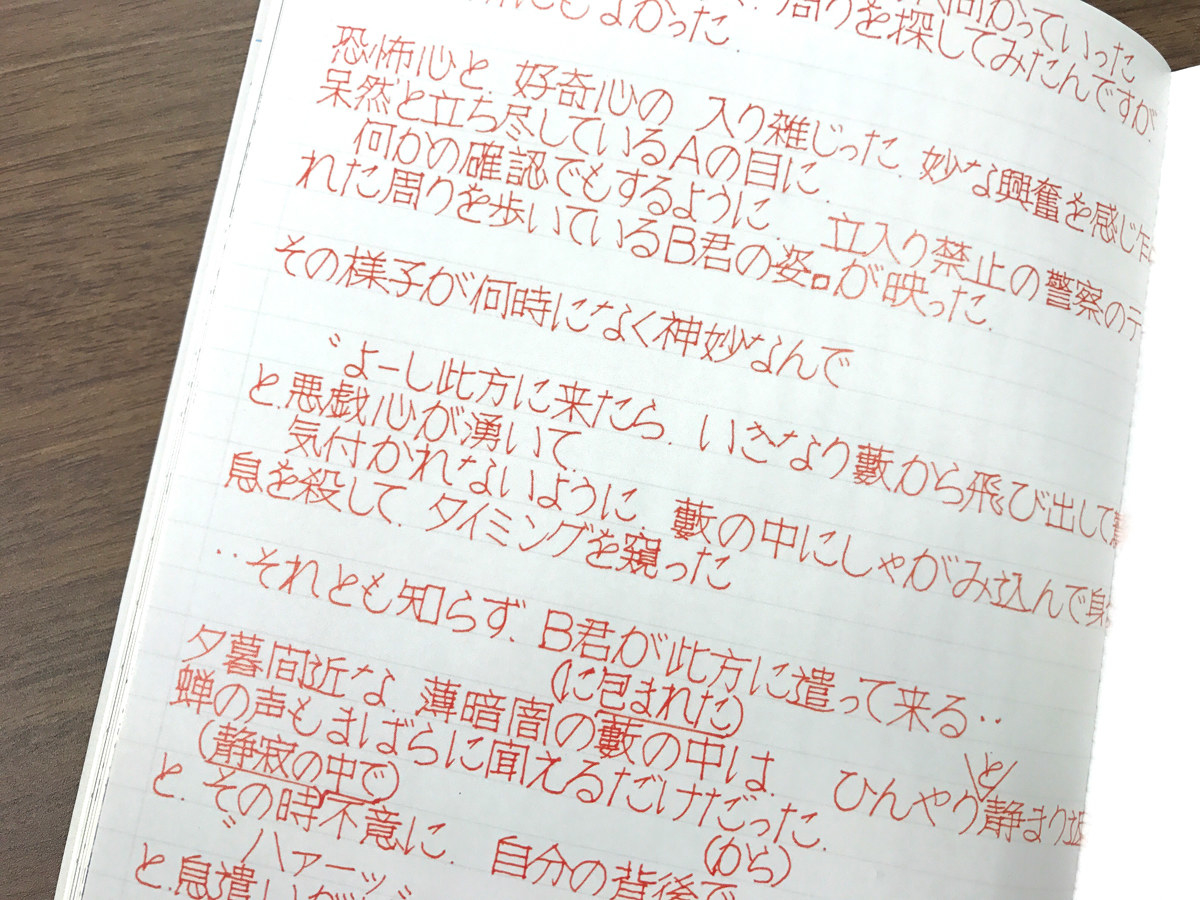 周りを探してみたんですが
にもよかった.
恐怖心と. 好奇心の 入り雑じった. 妙な興奮を感じ乍
呆然と立ち尽しているAの目に.
何かの確認でもするように. 立入り禁止の警察のテ
れた周りを歩いているB君の姿が映った.
その様子が何時になく神妙なんで
〝よーし此方に来たら. いきなり藪から飛び出して驚
と.悪戯心が湧いて.
気付かれないように. 藪の中にしゃがみ込んで身
息を殺して. タイミングを窺った
‥それとも知らず. B君が此方に遣って来る‥
(に包まれた)
夕暮間近な 薄暗闇の藪の中は. ひんやり静まり返
と
蝉の声もまばらに聞えるだけだった.
(静寂の中で)
と. その時不意に. 自分の背後で
(から)
〝ハァーッ〟
と.息遣いが